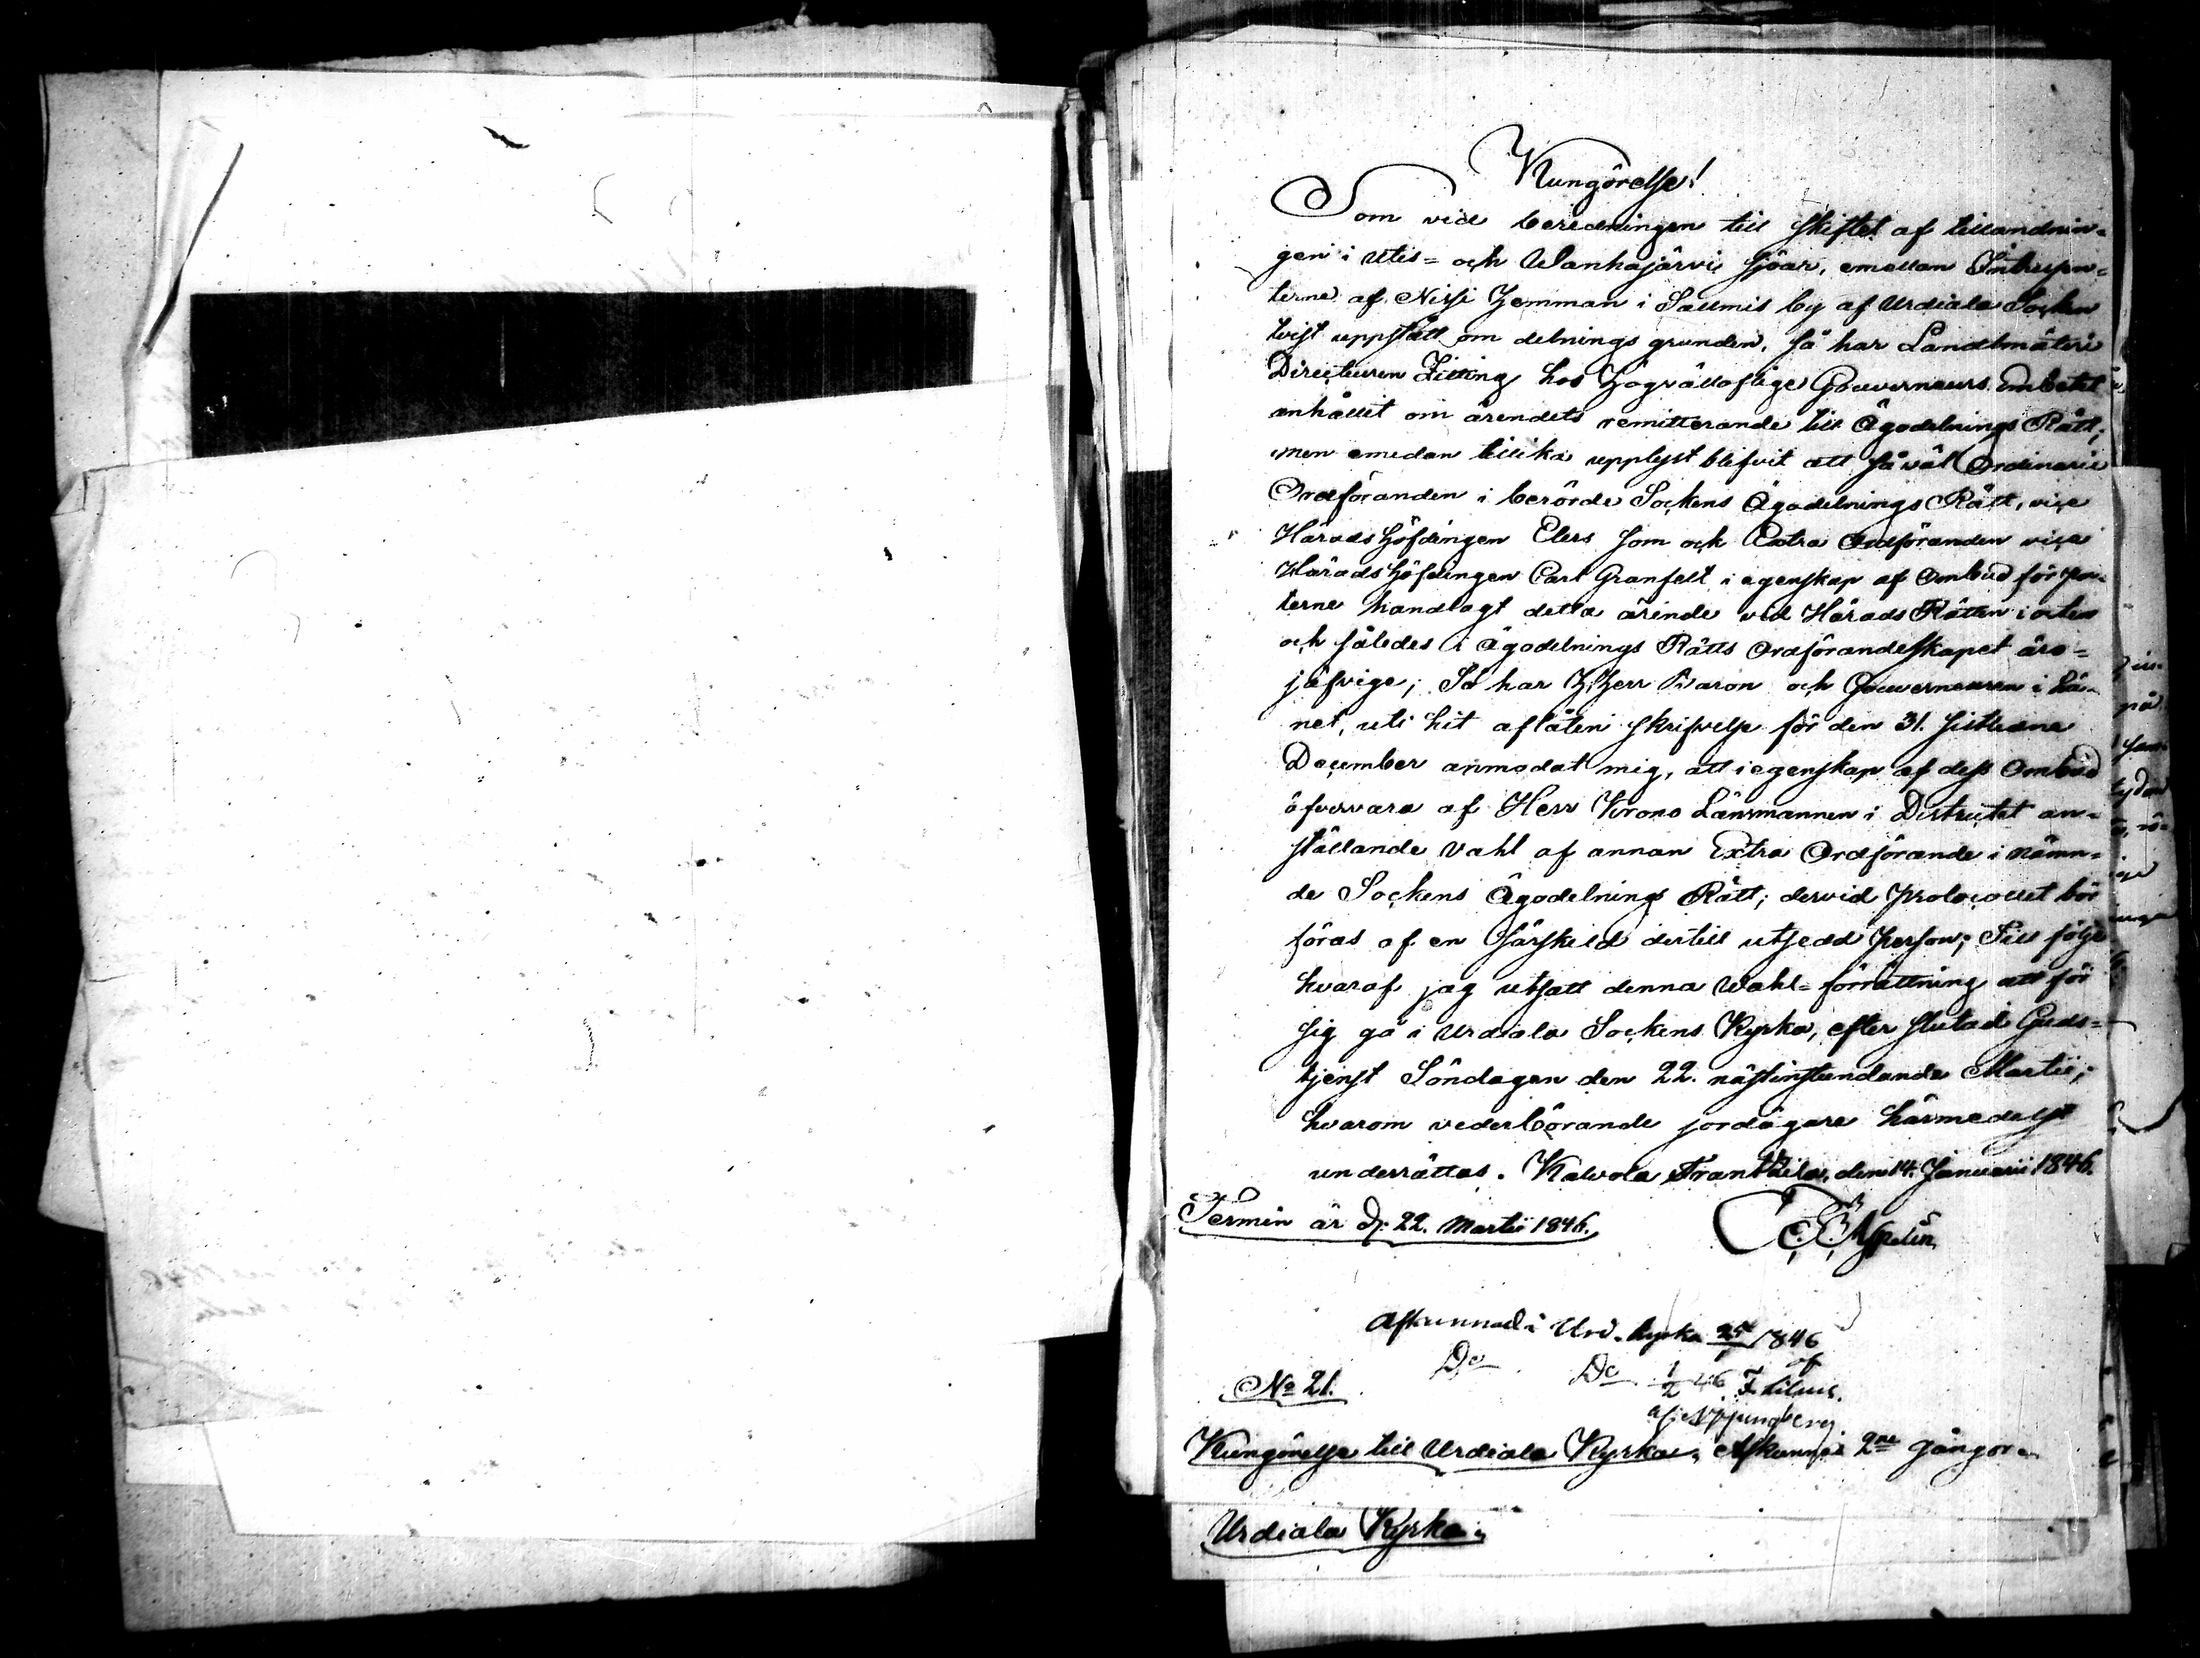 Kungörelse!
Som vid beredningen till skiftet af tillandnin-
gen i Utis= och Wanhajärvi sjöar, emellan Intressen-
terne af Nissi Hemman i Salmis by af Urdiala Socken
tvist uppstått om delnings grunden, så har Landtmäteri
Directeuren Filling hos Högvälloflige Gouverneurs Embetet
anhållit om ärendets remitterande till Ägodelnings Rätt;
men emedan tillika upplyst blifvit att så väl Ordinarie
Ordföranden i berörde Sockens Ägodelnings Rätt, vice
Häradshöfdingen Elers som och Extra Ordföranden vice
Häradshöfdingen Carl Granfelt i egenskap af Ombud för par-
terne handlagt detta ärende vid Härads Rätten i orten
och således i Ägodelnings Rätts Ordförandeskapet äro
jäfvige; Så har H. Herr Baron och Gouverneuren i Lä-
net, uti hit aflåten skrifvelse för den 31. sistledne
December anmodat mig, att i egenskap af dess Ombud
öfvervara af Herr Krono Länsmannen i Districtet an-
ställande Vahl af annan Extra Ordförande i nämn-
de Sockens Ägodelnings Rätt; dervid Protocollet bör
föras af en särskild dertill utsedd Person; Till följe
hvaraf jag utsatt denna Wahl=förrättning att för
sig gå i Urdiala Sockens Kyrka, efter slutad Guds=
tjenst Söndagen den 22. nästinstundande Martii;
hvarom vederbörande jordägare härmedelst
underrättas. Kalvola Franttila, den 14. Januarii 1846.
Termin är d. 22. Martii 1846.
Aspelin
Afkunnad i Urd. kyrka 25/1 1846
Do Do 1/2 46 af
No 21.
af Ljungberg
Kungörelse till Urdiala Kyrka; Afkunnas 2ne gångor
Urdiala Kyrka;